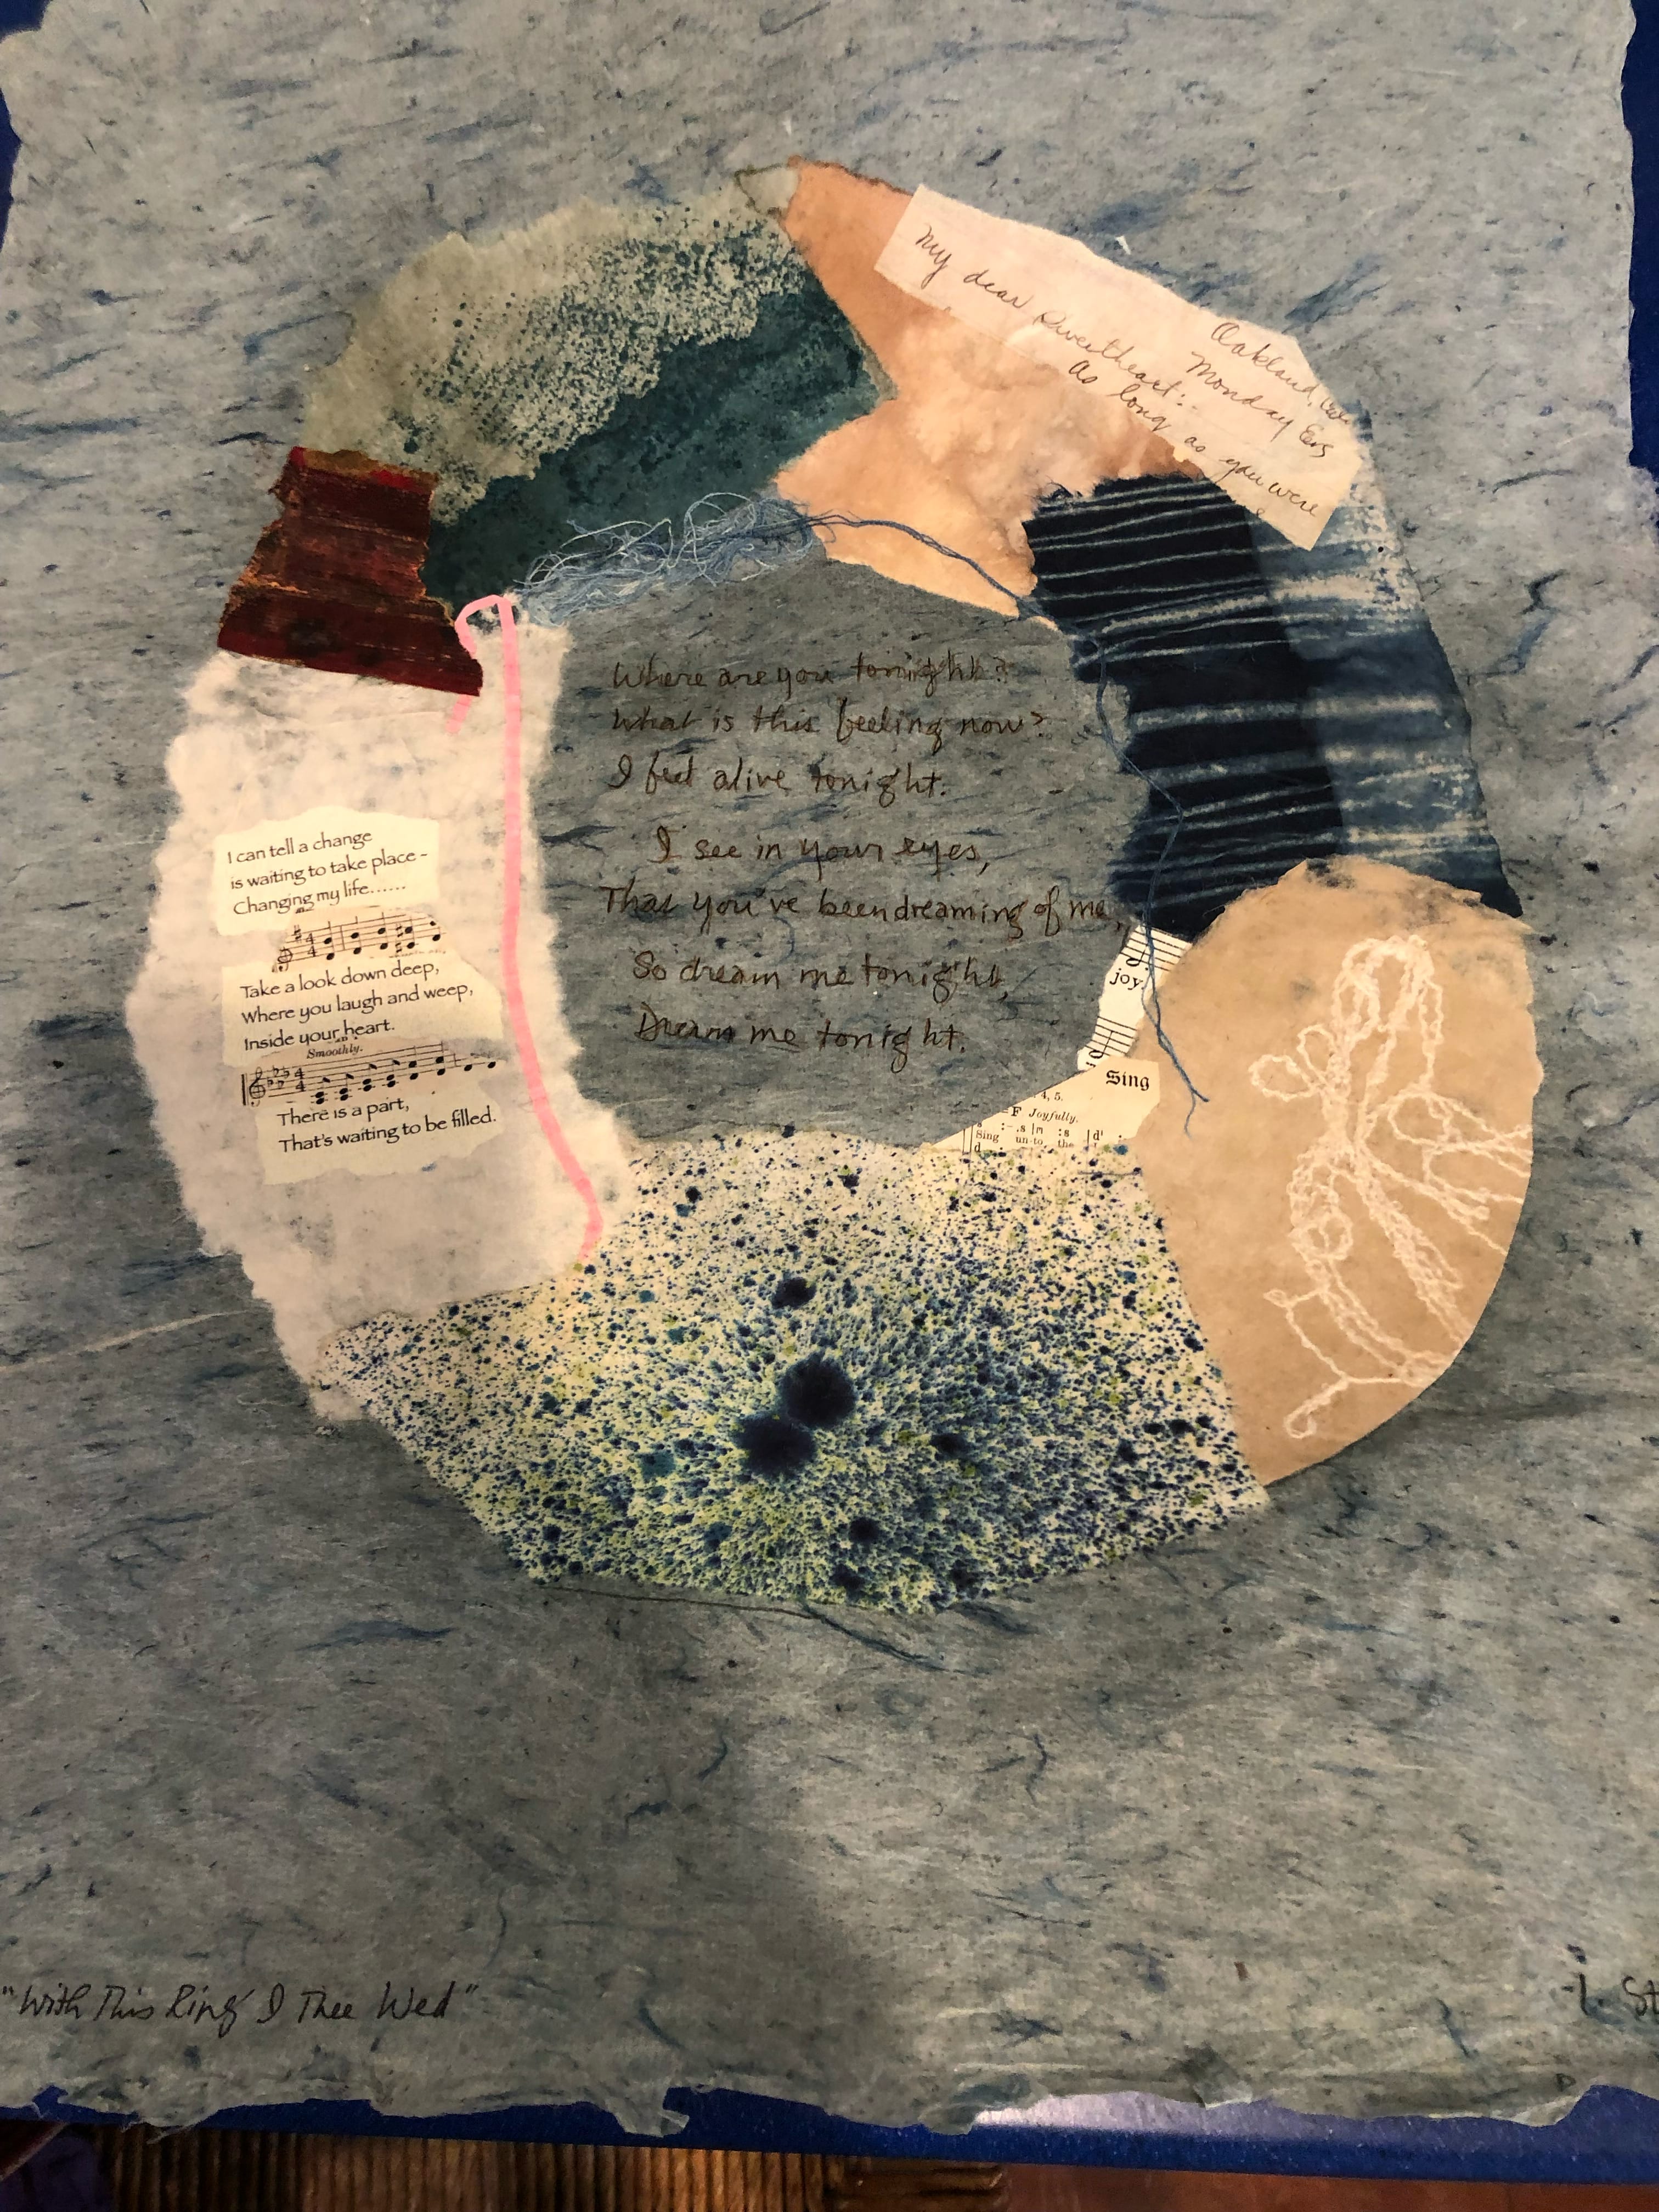 Oakland, Cal
Monday Eve
My dear Sweetheart:
As long as you were
Where are you tonight?
What is this feeling now?
I feel alive tonight.
I see in your eyes,
That you've been dreaming of me,
So dream me tonight,
Dream me tonight.
I can tell a change
is waiting to take place -
Changing my life......
Take a look down deep,
Where you laugh and weep,
Inside your heart.
Smoothly.
There is a part,
That's waiting to be filled.
joy.
Sing
4, 5.
=F Joyfully.
:-.s |m :s |d' :
Sing un-to the
d
"With This Ring I Thee Wed"
St